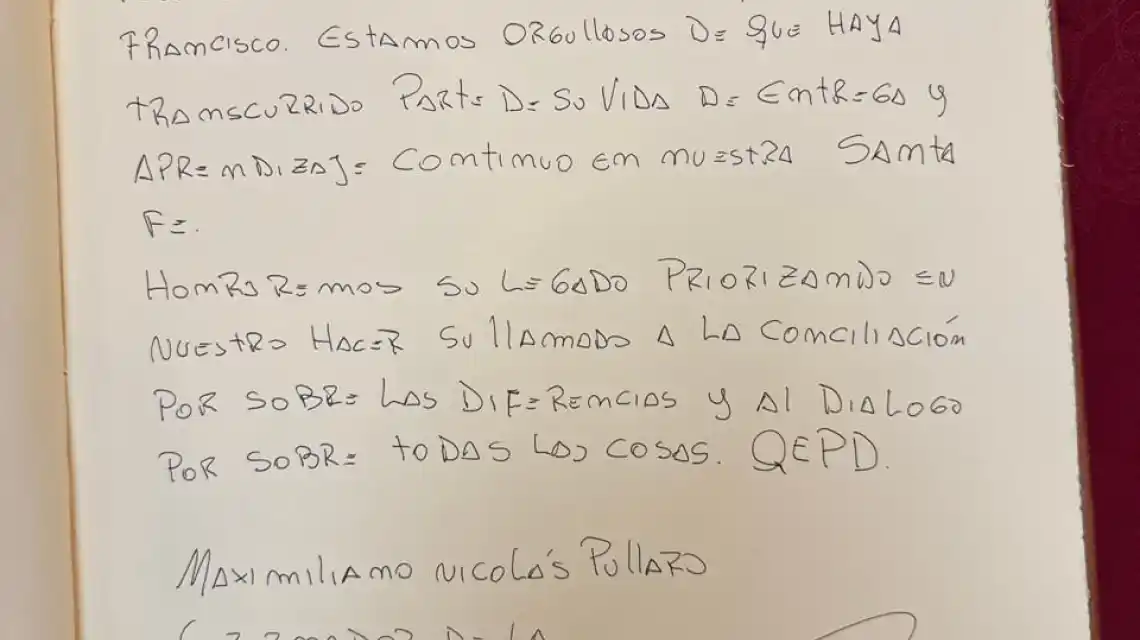 FRANCISCO. ESTAMOS ORGULLOSOS DE QUE HAYA
TRANSCURRIDO PARTE DE SU VIDA DE ENTREGA Y
APRENDIZAJE CONTINUO EN NUESTRA SANTA
FE.
HONRAREMOS SU LEGADO PRIORIZANDO EN
NUESTRO HACER SU LLAMADO A LA CONCILIACIÓN
POR SOBRE LAS DIFERENCIAS Y AL DIALOGO
POR SOBRE TODAS LAS COSAS. QEPD.
MAXIMILIANO NICOLÁS PULLARO